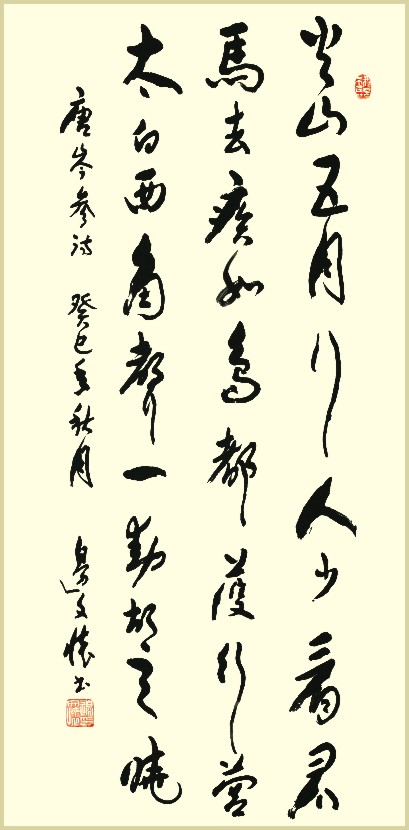 火山五月行人少看君
馬去疾如鳥都護行營
太白西角聲一動胡天曉
唐岑參詩 癸巳年秋月 邊文懷书